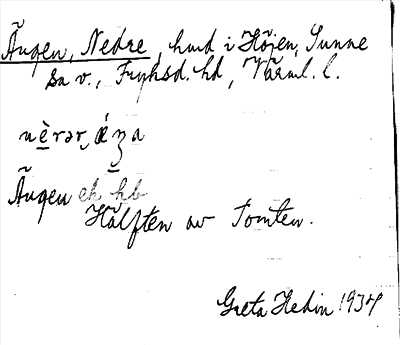 Ängen, Nedre, hmd i Höjen, Sunne
sn v., Fryksd. hd, Värml. l.
nèrər ǽŋa
Ängen eh hb
Hälften av Tomten.
Greta Hedin 1934